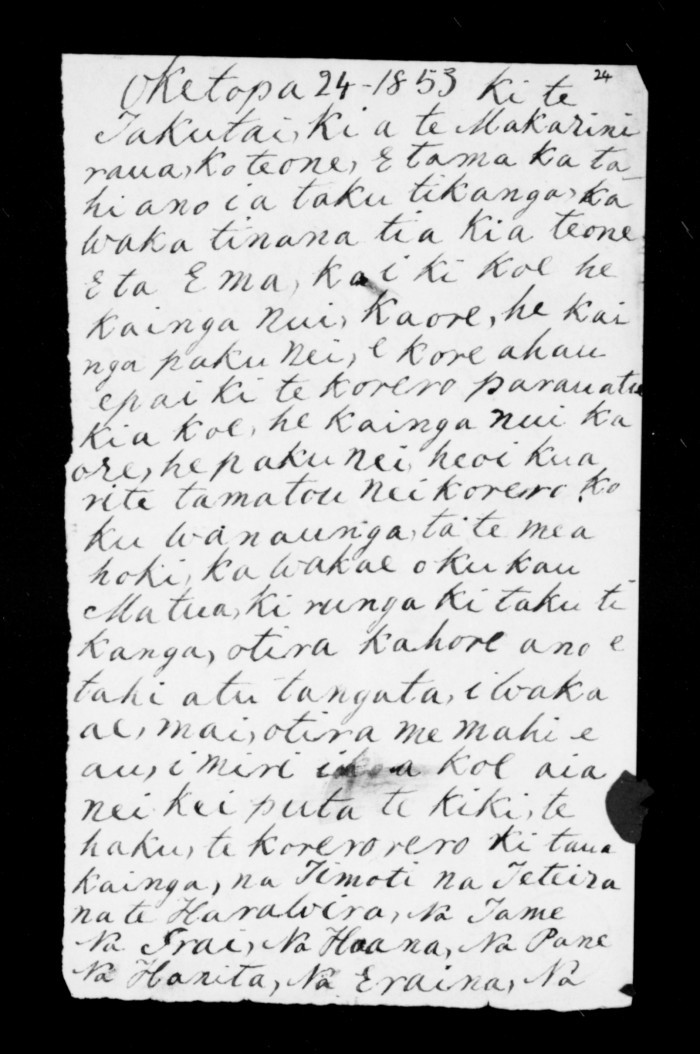 24
Oketopa 24-1853 Ki te
Takutai, Ki a te Makarini
raua, ko teone, E tama ka ta
hi ano i a taku tikanga, ka
waka tinana tia kia teone
E ta E ma, ka i ki koe he
kainga nui, kaore, he kai
nga paku nei, e kore ahau
e pai ki te korero parau atu
kia koe, he kainga nui ka
ore, he paku nei, heoi kua
rite tamatou nei korero, ko
ku wanaunga, ta te mea
hoki, ka wakae oku kau
Matua, ki runga ki taku ti
kanga, otira kahore ano e
tahi atu tangata, i waka
ae, mai, otira me mahi e
au, i miri koe aia
nei kei puta te kiki, te
haku, te korerorero ki taua
kainga, na Timoti na Teteira
na te Harawira, Na Tame
Na Trai, Na Hoana, Na Pane
Na Hanita, Na Eraina, Na